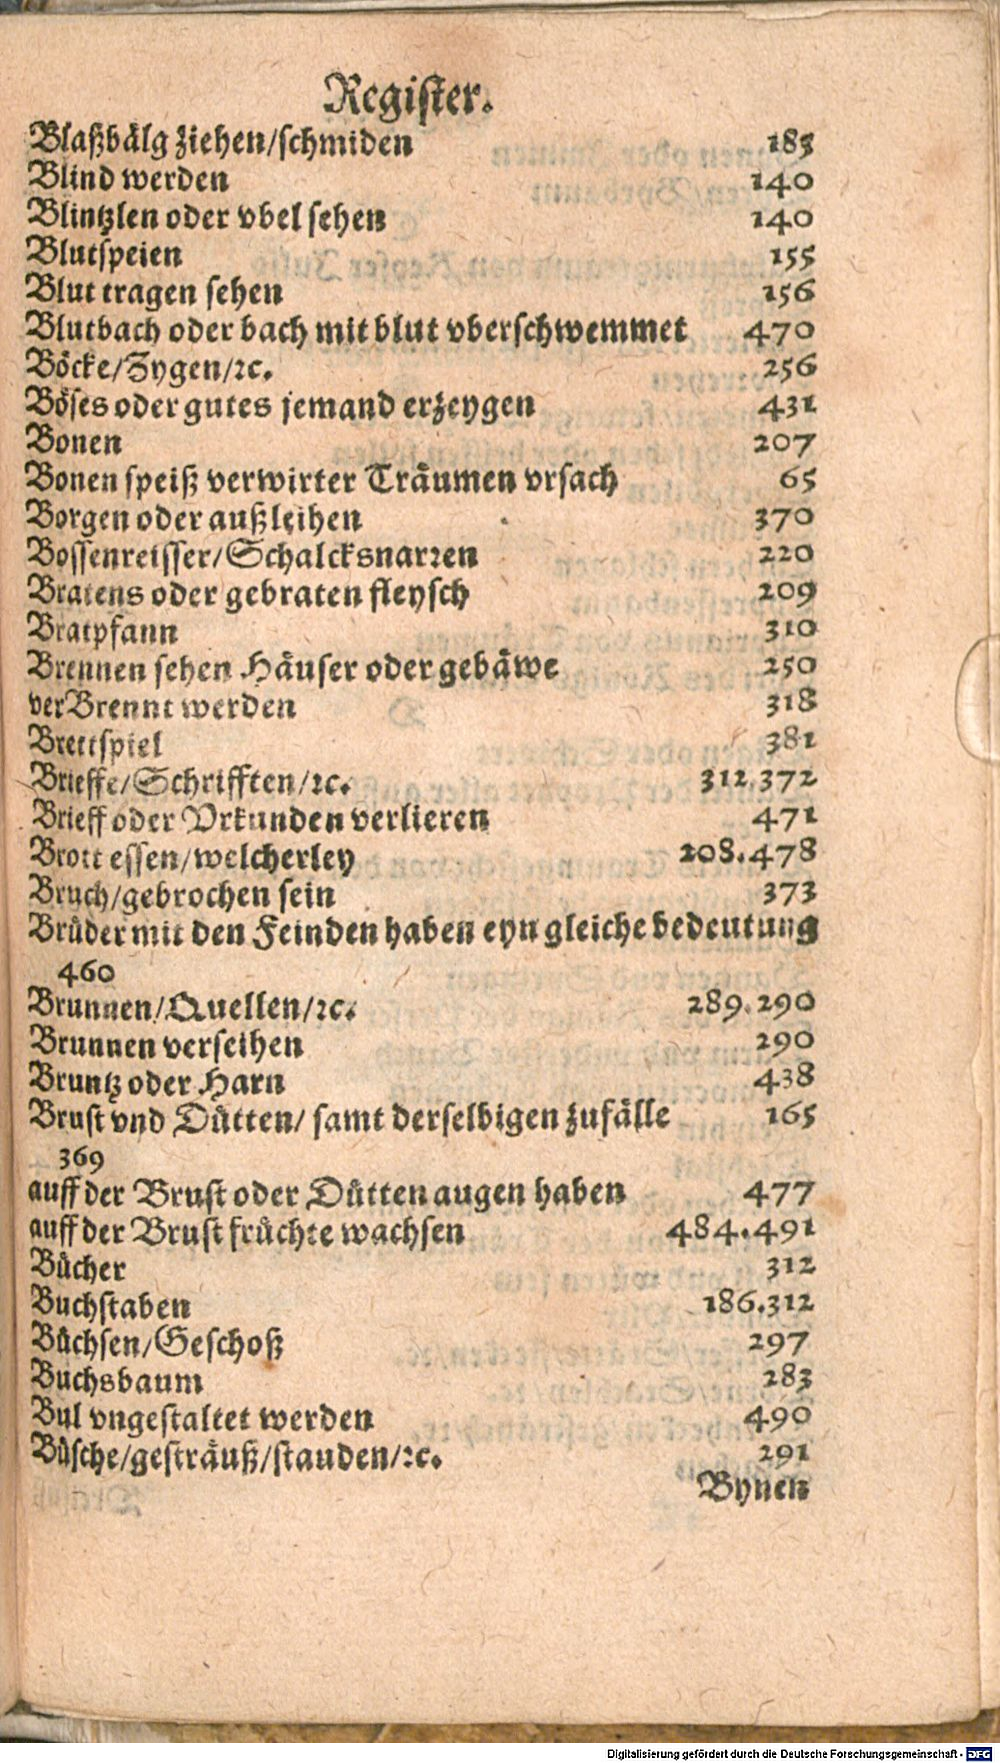 Register.
Blaßbälg ziehen/schmiden 185
Blind werden 140
Blintzlen oder vbel sehen 140
Blutspeien 155
Blut tragen sehen 156
Blutbach oder bach mit blut vberschwemmet 470
Böcke/Zygen/ꝛc. 256
Böses oder gutes jemand erzeygen 431
Bonen 207
Bonen speiß verwirter Träumen vrsach 65
Borgen oder außleihen 370
Bossenreisser/Schalcksnarren 220
Bratens oder gebraten fleysch 209
Bratpfann 310
Brennen sehen Häuser oder gebäwe 250
verBrennt werden 318
Brettspiel 381
Brieffe/Schrifften/ꝛc. 312.372
Brieff oder Vrkunden verlieren 471
Brott essen/welcherley 208.478
Bruch/gebrochen sein 373
Brüder mit den Feinden haben eyn gleiche bedeutung
460
Brunnen/Quellen/ꝛc. 289.290
Brunnen verseihen 290
Bruntz oder Harn 438
Brust vnd Dütten/ samt derselbigen zufälle 165
369
auff der Brust oder Dütten augen haben 477
auff der Brust früchte wachsen 484.491
Bücher 312
Buchstaben 186.312
Büchsen/Geschoß 297
Buchsbaum 283
Bul vngestaltet werden 490
Büsche/gesträuß/stauden/ꝛc. 291
Bynen
Digitalisierung gefördert durch die Deutsche Forschungsgemeinschaft - DFG